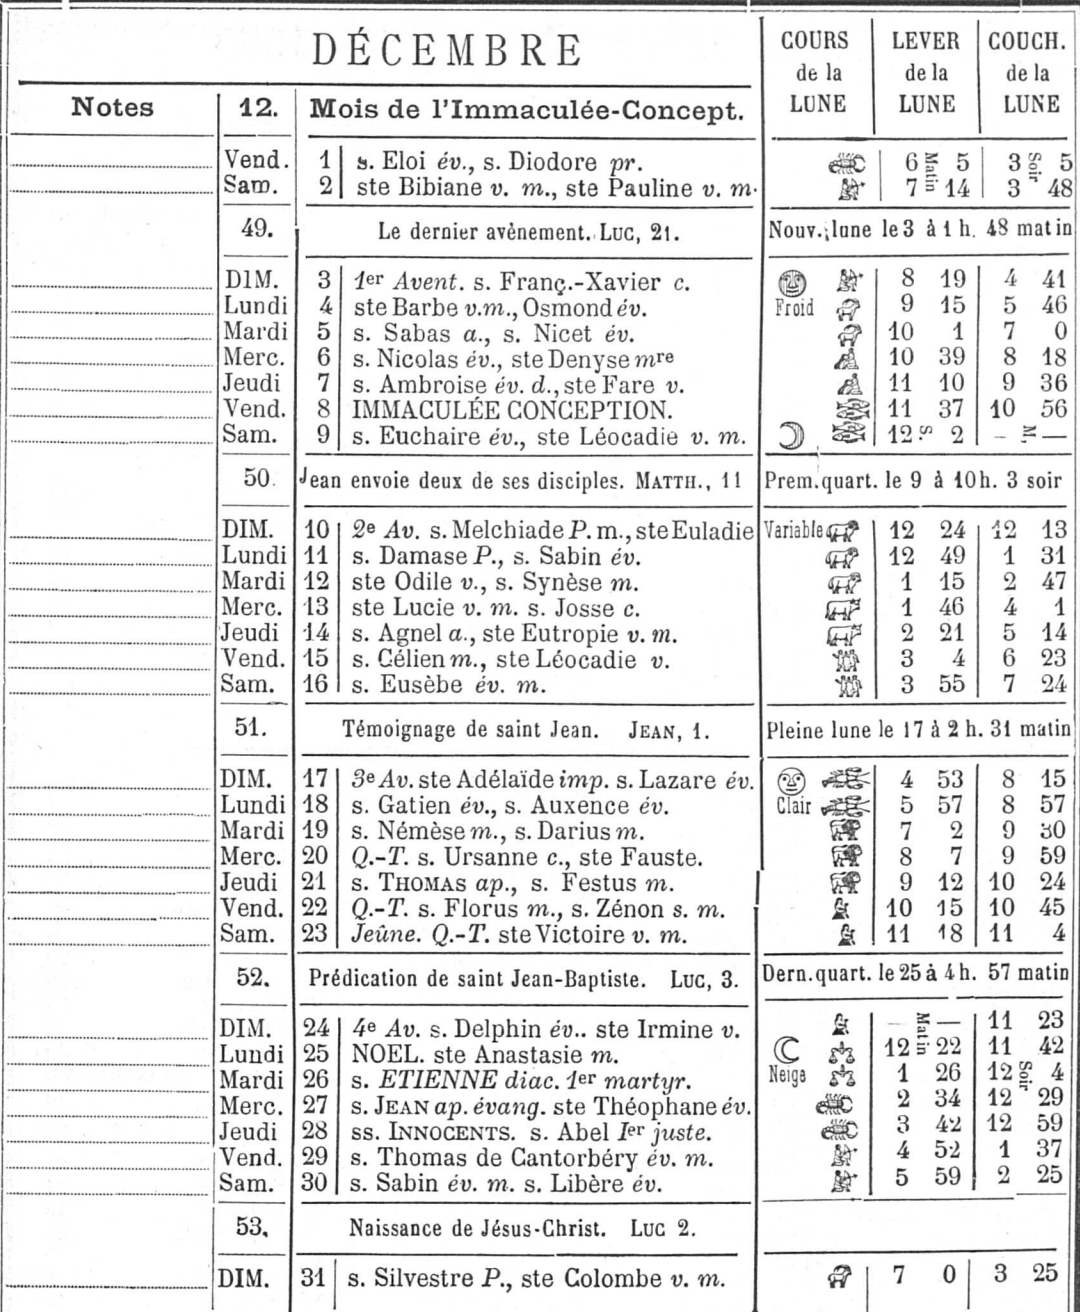 DÉCEMBRE
COURS de la LUNE
LEVER de la LUNE
COUCH. de la LUNE
Notes 12. Mois de l'Immaculée-Concept.
Vend. 1 s. Eloi év., s. Diodore pr. 6 Matin 5 3 Soir 5
Sam. 2 ste Bibiane v. m., ste Pauline v. m. 7 14 3 48
49. Le dernier avènement. Luc, 21. Nouv. lune le 3 à 1 h. 48 matin
DIM. 3 1er Avent. s. Franç.-Xavier c. 8 19 4 41
Lundi 4 ste Barbe v.m., Osmond év. Froid 9 15 5 46
Mardi 5 s. Sabas a., s. Nicet év. 10 1 7 0
Merc. 6 s. Nicolas év., ste Denyse mre 10 39 8 18
Jeudi 7 s. Ambroise év. d., ste Fare v. 11 10 9 36
Vend. 8 IMMACULÉE CONCEPTION. 11 37 10 56
Sam. 9 s. Euchaire év., ste Léocadie v. m. 12 S 2 — M. —
50. Jean envoie deux de ses disciples. MATTH., 11 Prem. quart. le 9 à 10 h. 3 soir
DIM. 10 2e Av. s. Melchiade P. m., ste Euladie Variable 12 24 12 13
Lundi 11 s. Damase P., s. Sabin év. 12 49 1 31
Mardi 12 ste Odile v., s. Synèse m. 1 15 2 47
Merc. 13 ste Lucie v. m. s. Josse c. 1 46 4 1
Jeudi 14 s. Agnel a., ste Eutropie v. m. 2 21 5 14
Vend. 15 s. Célien m., ste Léocadie v. 3 4 6 23
Sam. 16 s. Eusèbe év. m. 3 55 7 24
51. Témoignage de saint Jean. JEAN, 1. Pleine lune le 17 à 2 h. 31 matin
DIM. 17 3e Av. ste Adélaïde imp. s. Lazare év. 4 53 8 15
Lundi 18 s. Gatien év., s. Auxence év. Clair 5 57 8 57
Mardi 19 s. Némèse m., s. Darius m. 7 2 9 30
Merc. 20 Q.-T. s. Ursanne c., ste Fauste. 8 7 9 59
Jeudi 21 s. THOMAS ap., s. Festus m. 9 12 10 24
Vend. 22 Q.-T. s. Florus m., s. Zénon s. m. 10 15 10 45
Sam. 23 Jeûne. Q.-T. ste Victoire v. m. 11 18 11 4
52. Prédication de saint Jean-Baptiste. Luc, 3. Dern. quart. le 25 à 4 h. 57 matin
DIM. 24 4e Av. s. Delphin év.. ste Irmine v. — Matin — 11 23
Lundi 25 NOEL. ste Anastasie m. 12 22 11 42
Mardi 26 s. ETIENNE diac. 1er martyr. Neige 1 26 12 Soir 4
Merc. 27 s. JEAN ap. évang. ste Théophane év. 2 34 12 29
Jeudi 28 ss. INNOCENTS. s. Abel Ier juste. 3 42 12 59
Vend. 29 s. Thomas de Cantorbéry év. m. 4 52 1 37
Sam. 30 s. Sabin év. m. s. Libère év. 5 59 2 25
53. Naissance de Jésus-Christ. Luc 2.
DIM. 31 s. Silvestre P., ste Colombe v. m. 7 0 3 25